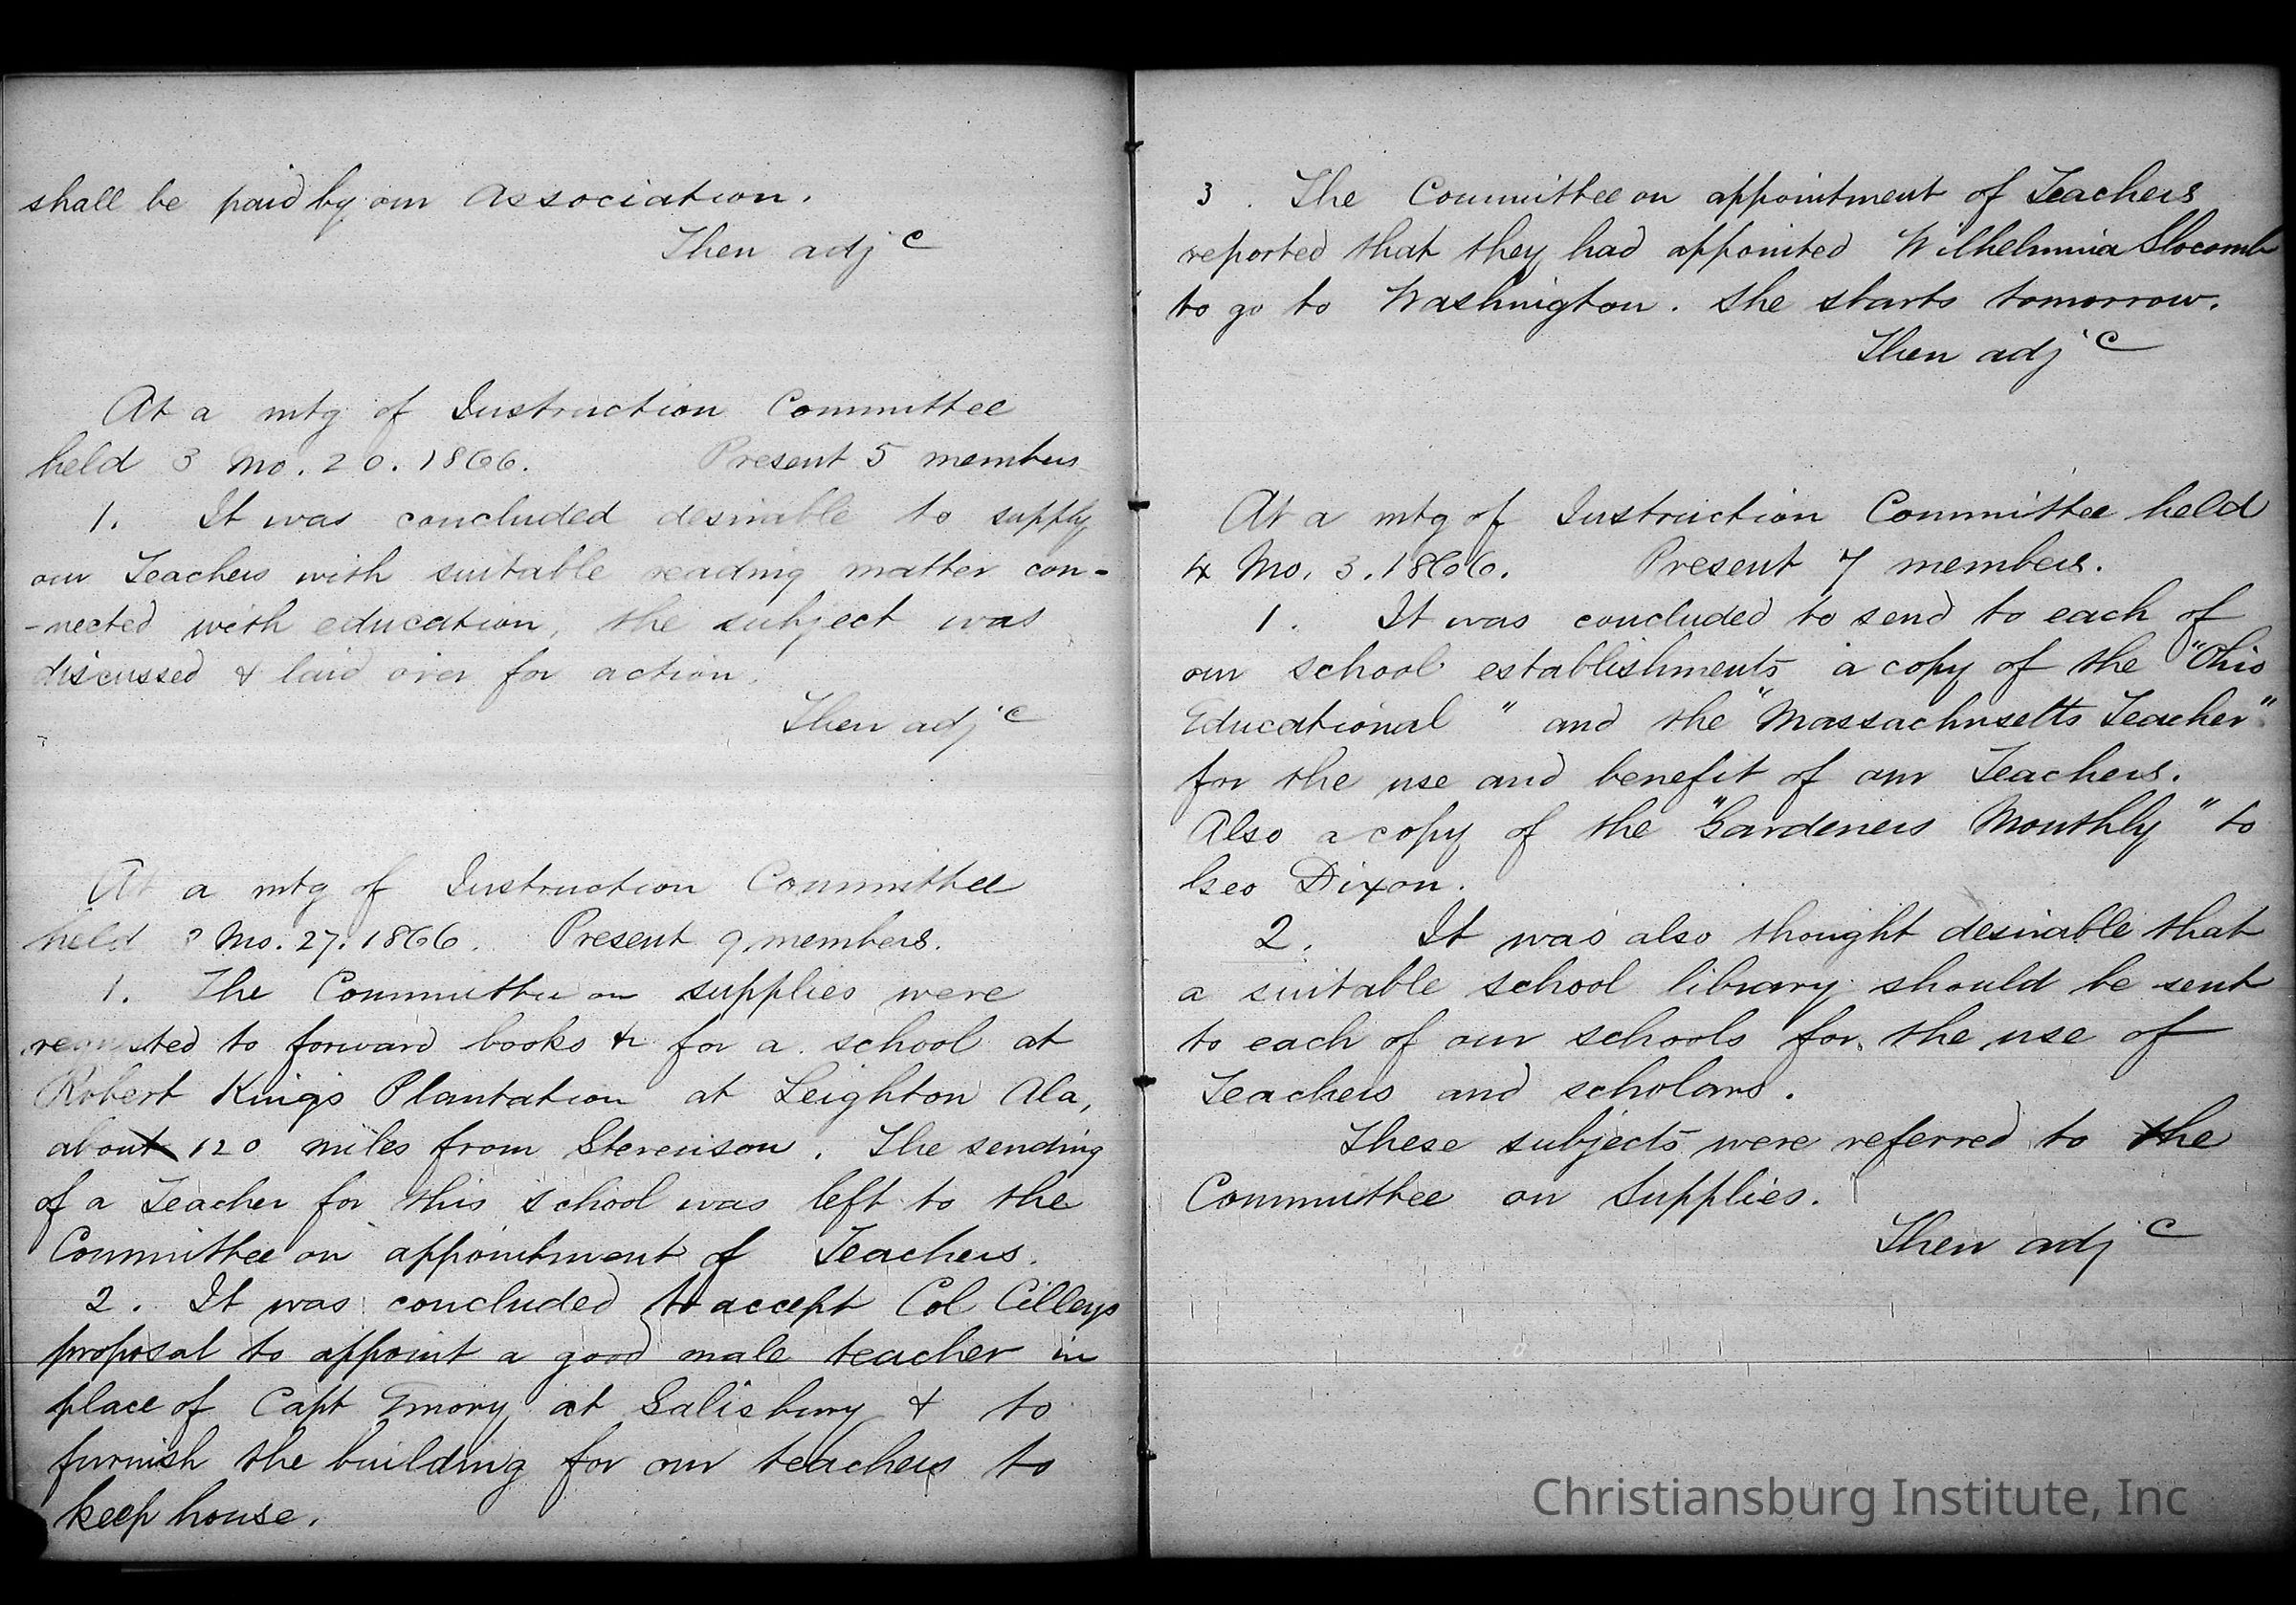 shall be paid by our Association.
Then adj c
At a mtg of Instruction Committee
held 3 Mo. 20. 1866. Present 5 members
1. It was concluded desirable to supply
our Teachers with suitable reading matter con-
-nected with education, the subject was
discussed & laid over for action.
Then adj c
At a mtg of Instruction Committee
held 3 Mo. 27. 1866. Present 9 members.
1. The Committee on supplies were
requested to forward books &c for a school at
Robert Kings Plantation at Leighton Ala,
about 120 miles from Stevenson. The sending
of a Teacher for this school was left to the
Committee on appointment of Teachers.
2. It was concluded to accept Col Cilleys
proposal to appoint a good male teacher in
place of Capt Emory at Salisbury & to
furnish the building for our teachers to
keep house.
3. The Committee on appointment of Teachers
reported that they had appointed Wilhelmina Slocomb
to go to Washington. She starts tomorrow.
Then adj c
At a mtg of Instruction Committee held
4 Mo. 3. 1866. Present 7 members.
1. It was concluded to send to each of
our school establishments a copy of the "Ohio
Educational " and the "Massachusetts Teacher"
for the use and benefit of our Teachers.
Also a copy of the "Gardeners Monthly" to
Geo Dixon.
2. It was also thought desirable that
a suitable school library should be sent
to each of our schools for the use of
Teachers and scholars.
These subjects were referred to the
Committee on Supplies.
Then adj c
Christiansburg Institute, Inc